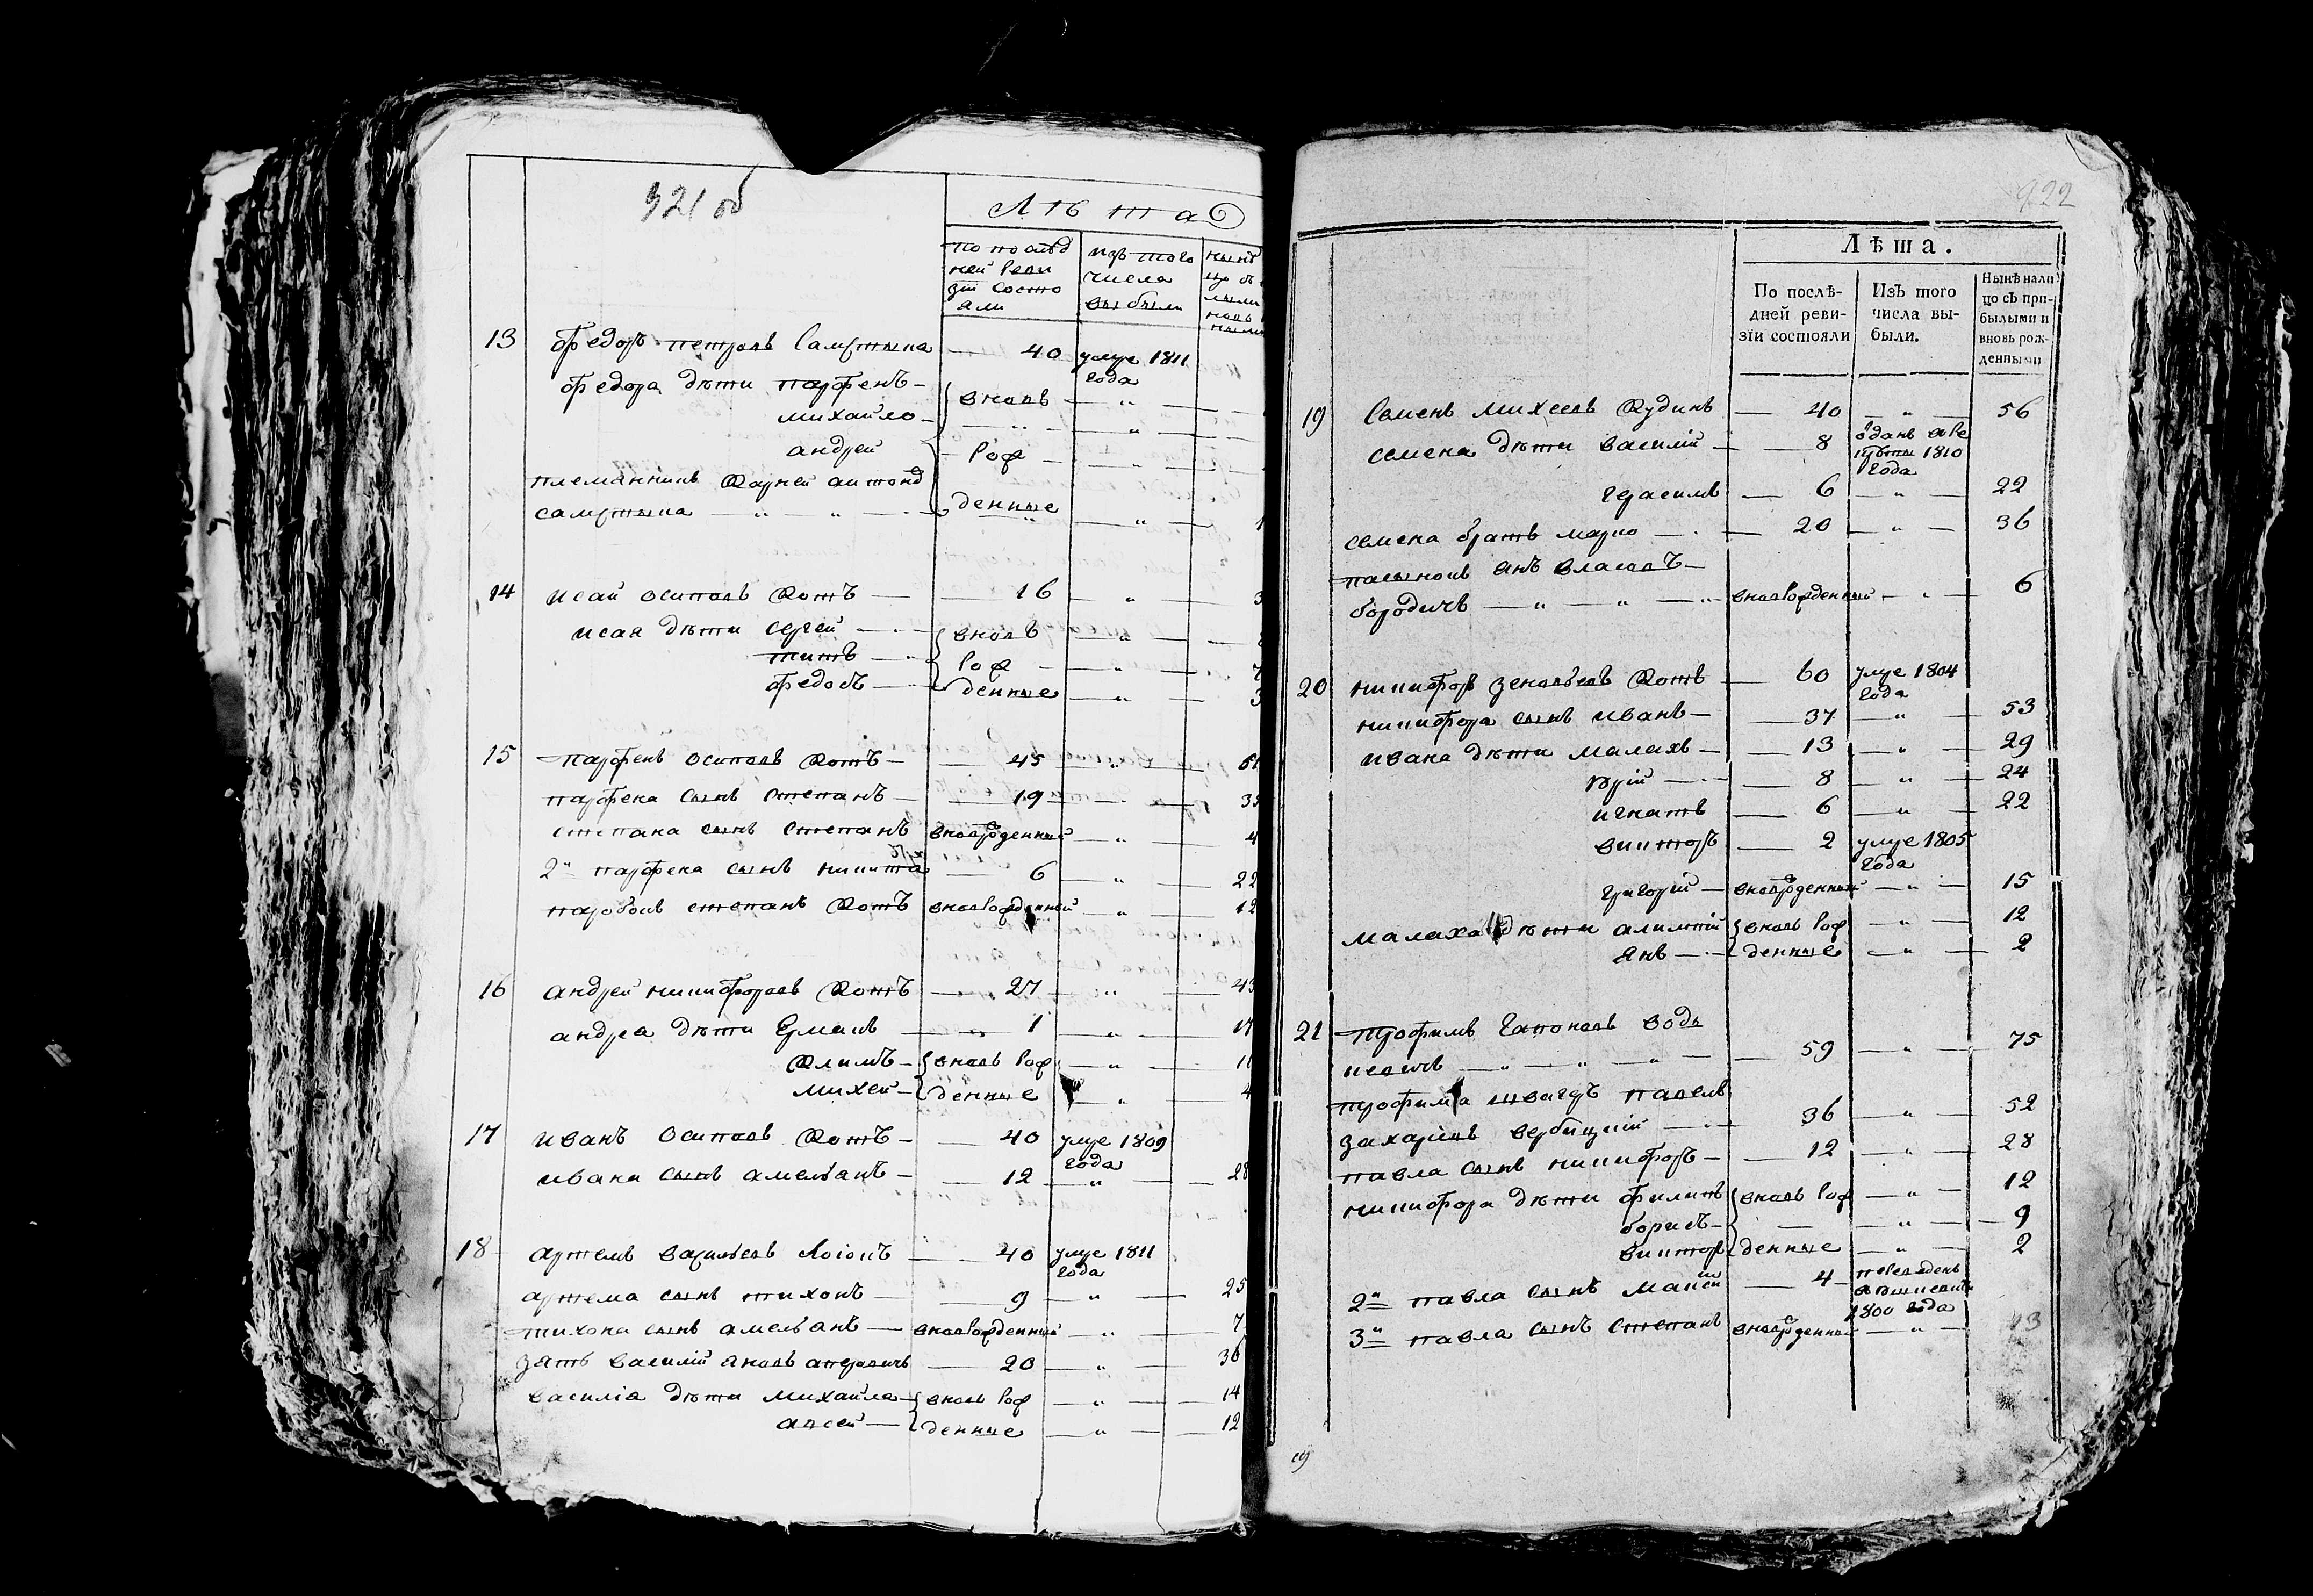 921 об
Лѣта
по послѣд
ней реви
зіи состо
яли
изъ того
числа
выбыли
13 Федоръ петровъ 40 умре 1811
года
Федора дѣти парфенъ — вновь — „ —
михайло — „ —
андрей — рож — „ —
племянникъ Корней
денные — „ —
14 исай осиповъ Котъ — 16 — „ —
исая дѣти сергей — вновь — „ —
титъ — рож — „ — 7
федосъ — денные — „ — 3
15 парфенъ осиповъ Котъ — 45 — „ — 61
парфена сынъ степанъ — 19 — „ — 35
степана сынъ степанъ вноврожденный — „ — 4
2й парфена сынъ никита — 6 — „ — 22
степанъ Котъ вноворожденный — „ — 12
16 андрей никифоровъ Котъ — 27 — „ — 43
андрея дѣти Ермакъ — 1 — „ — 17
Климъ — вновь рож — „ — 11
михей — денные — „ — 4
17 иванъ осиповъ Котъ — 40 умре 1809
года
ивана сынъ амельанъ — 12 — „ — 28
18 артемъ васильевъ — 40 умре 1811
года
артема сынъ тихонъ — 9 — „ — 25
тихона сынъ амельанъ — вноворожденный — „ — 7
зять василій яковъ — 20 — „ — 36
василіа дѣти михайла — вновь рож — „ — 14
алсей — денные — „ — 12
922
Лѣта.
По послѣ-
дней реви-
зіи состояли
Изъ того
числа вы-
были.
Нынѣ нали
цо съ при-
былыми и
вновь рож-
денными
19 Семенъ михеевъ Кудинъ — 40 — „ — 56
семена дѣти василій — 8 одани въ ре
круты 1810
года
герасимъ — 6 — „ — 22
семена братъ марко — 20 — „ — 36
пасынокъ янъ власовъ —
бородичъ — „ — „ — вноворожденный — „ — 6
20 никифоръ зеновьевъ Котъ — 60 умре 1804
года
никифора сынъ иванъ — 37 — „ — 53
ивана дѣти малахъ — 13 — „ — 29
юрій — 8 — „ — 24
игнатъ — 6 — „ — 22
викторъ — 2 умре 1805
года
григорій — вноврожденный — „ — 15
малаха дѣти алимпій вновь рож — „ — 12
янъ — денные — „ — 2
21 трофимъ Гапоновъ
— „ — „ — 59 — „ — 75
трофима швагръ павелъ
захарiевъ вербицкій — 36 — „ — 52
павла сынъ никифоръ — 12 — „ — 28
никифора дѣти филипъ вновь рож — „ — 12
борисъ — „ — 9
викторъ денные — „ — 2
2й павла сынъ 4 переведенъ
1800 года
3й павла сынъ степанъ вноврожденный — „ — 13